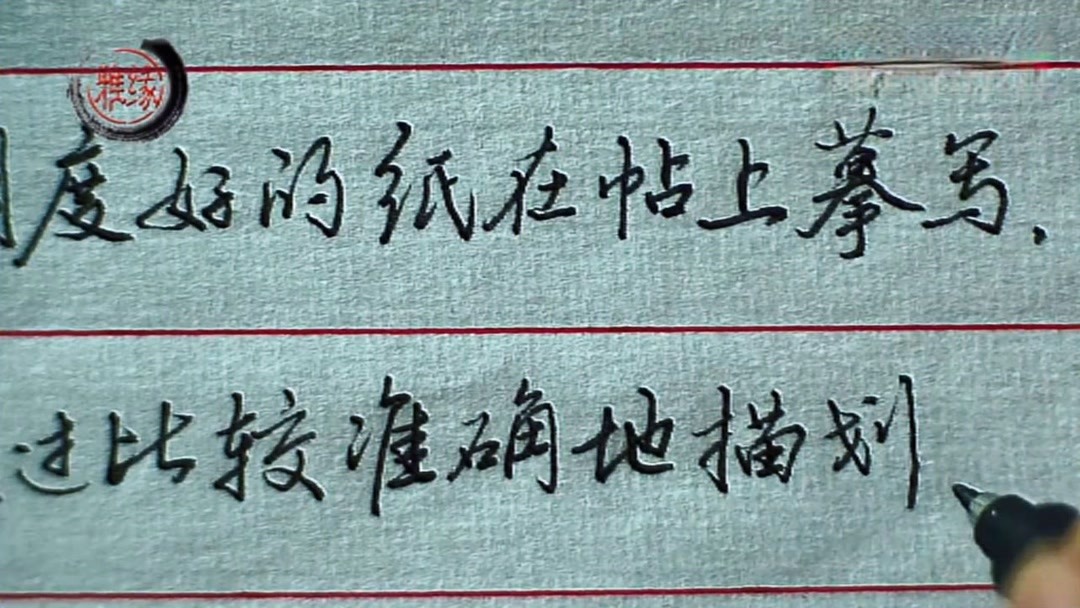 雅缘
度好的纸在帖上摹写，
过比较准确地描划